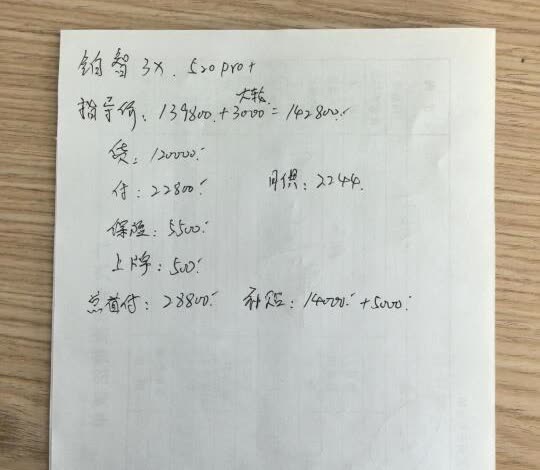 铂智3X. 520pro+
大轮
指导价: 139800.+3000=142800.
贷: 120000.
付: 22800. 月供: 2244.
保险: 5500.
上牌: 500.
总首付: 28800. 补贴: 14000.+5000.